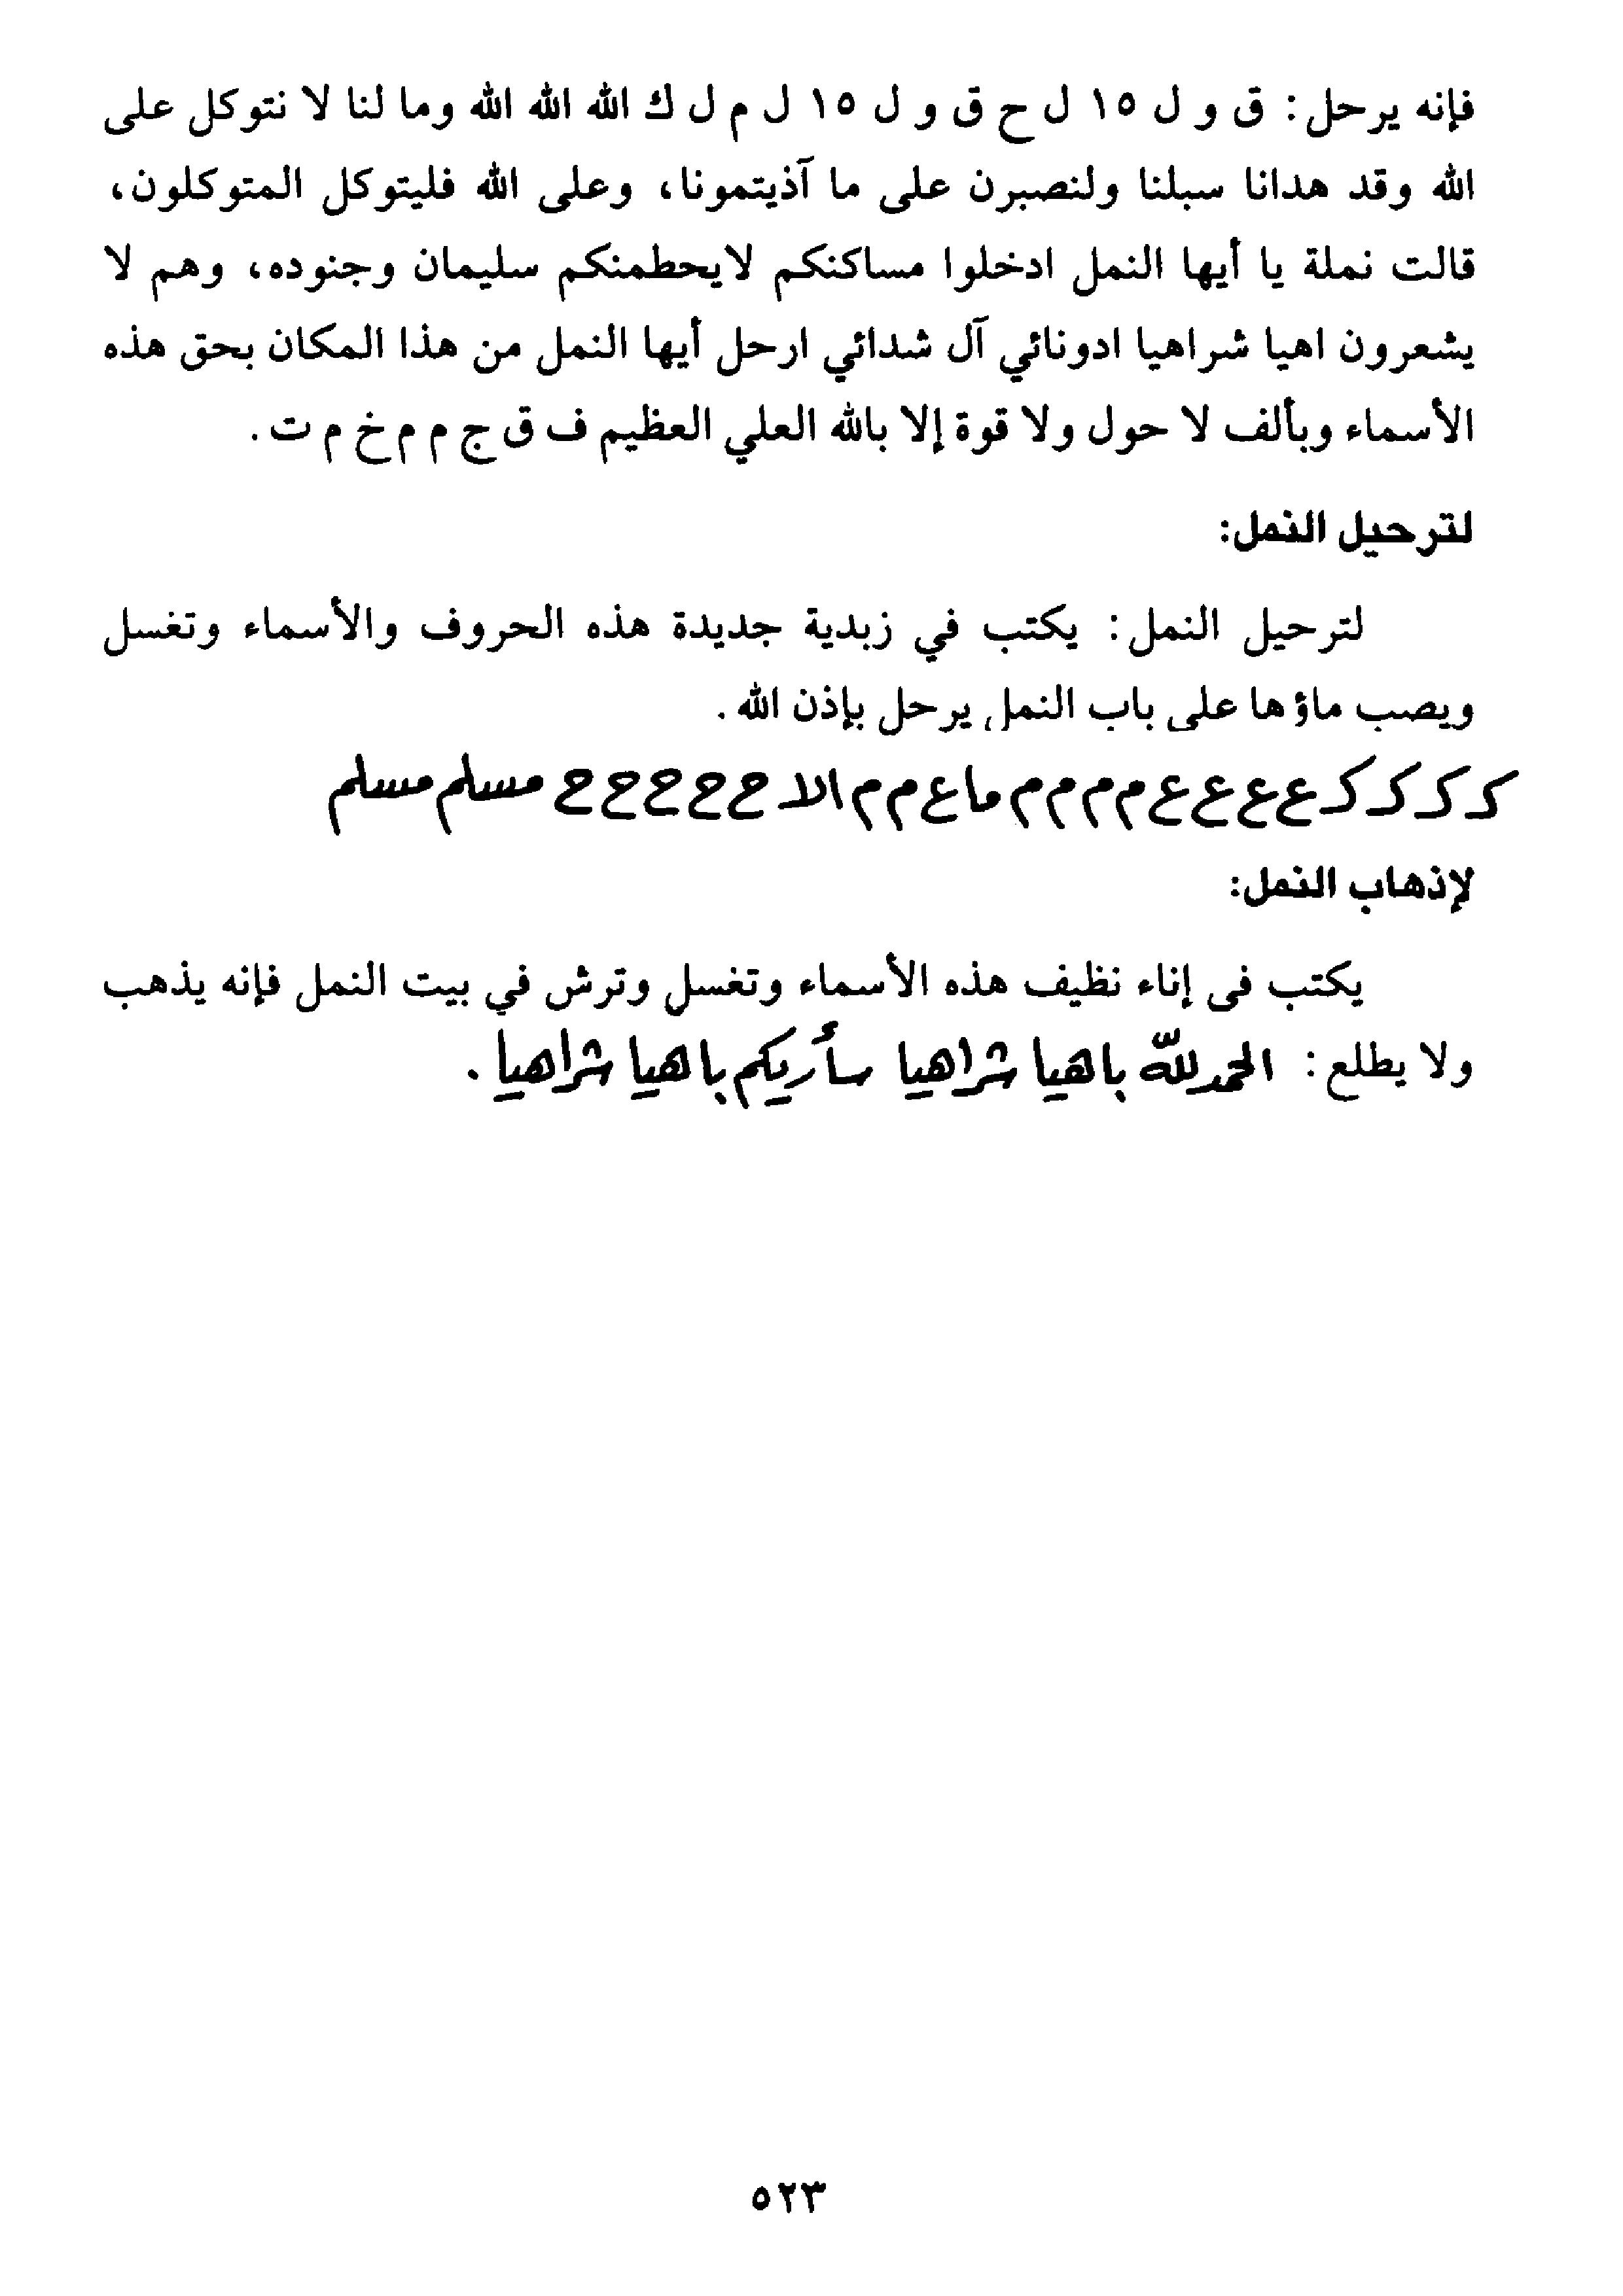 فإنه يرحل: ق و ل ١٥ ل ح ق و ل ١٥ ل م ل ك الله الله الله وما لنا لا نتوكل على
الله وقد هدانا سبلنا ولنصبرن على ما آذيتمونا، وعلى الله فليتوكل المتوكلون،
قالت نملة يا أيها النمل ادخلوا مساكنكم لايحطمنكم سليمان وجنوده، وهم لا
يشعرون اهيا شراهيا ادونائي آل شدائي ارحل أيها النمل من هذا المكان بحق هذه
الأسماء وبألف لا حول ولا قوة إلا بالله العلي العظيم ف ق ج م م خ م ت.
لترحيل النمل:
لترحيل النمل: يكتب في زبدية جديدة هذه الحروف والأسماء وتغسل
ويصب ماؤها على باب النمل يرحل بإذن الله.
كـ كـ كـ كـ ع ع ع ع م م م م ما ع م م الا ح ح ح ح ح مسلم مسلم
لإذهاب النمل:
يكتب في إناء نظيف هذه الأسماء وتغسل وترش في بيت النمل فإنه يذهب
ولا يطلع: الحمد لله باهيا شراهيا سأريكم باهيا شراهيا.
٥٢٣